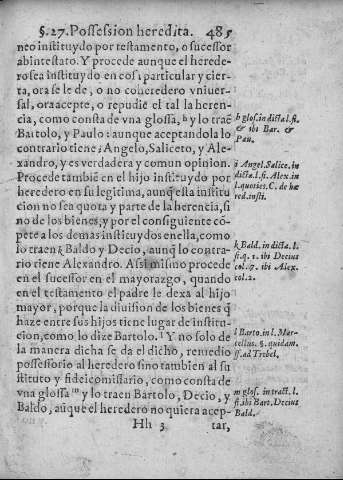 §.27. Possession heredita. 485
neo instituydo por testamento, o sucessor
abintestato. Y procede aunque el herede-
ro sea instituydo en cosa particular y cier-
ta, ora se le de, o no coheredero vniuer-
sal, ora acepte, o repudie el tal la heren-
cia, como consta de vna glossa, h y lo traẽ
Bartolo, y Paulo: aunque aceptandola lo
contrario tiene i Angelo, Saliceto, y Ale-
xandro, y es verdadera y comun opinion.
Procede tambiẽ en el hijo instituydo por
heredero en su legitima, aunq̃ esta institu
cion no sea quota y parte de la herencia, si
no de los bienes, y por el consiguiente cõ-
pete a los demas instituydos en ella, como
lo traen k Baldo y Decio, aunq̃ lo contra-
rio tiene Alexandro. Assi mismo procede
en el sucessor en el mayorazgo, quando
en el testamento el padre le dexa al hijo
mayor, porque la diuision de los bienes q̃
haze entre sus hijos tiene lugar de institu-
cion, como lo dize Bartolo. l Y no solo de
la manera dicha se da el dicho, remedio
possessorio al heredero sino tambien al su
stituto y fideicomissario, como consta de
vna glossa m y lo traen Bartolo, Decio, y
Baldo, aũque el heredero no quiera acep-
Hh 3 tar,
h glos. in dicta l. fi.
& ibi Bar. &
Pau.
i Angel. Salice. in
dicta. l. fi. Alex. in
l. quoties. C. de hæ
red. insti.
k Bald. in dicta. l.
fi. q. 1. ibi Decius
col. 9. ibi Alex.
col. 2.
l Barto. in l. Mar-
cellus. §. quidam.
ff. ad Trebel.
m glos. in tract. l.
fi. ibi Bart. Decius
Bald.